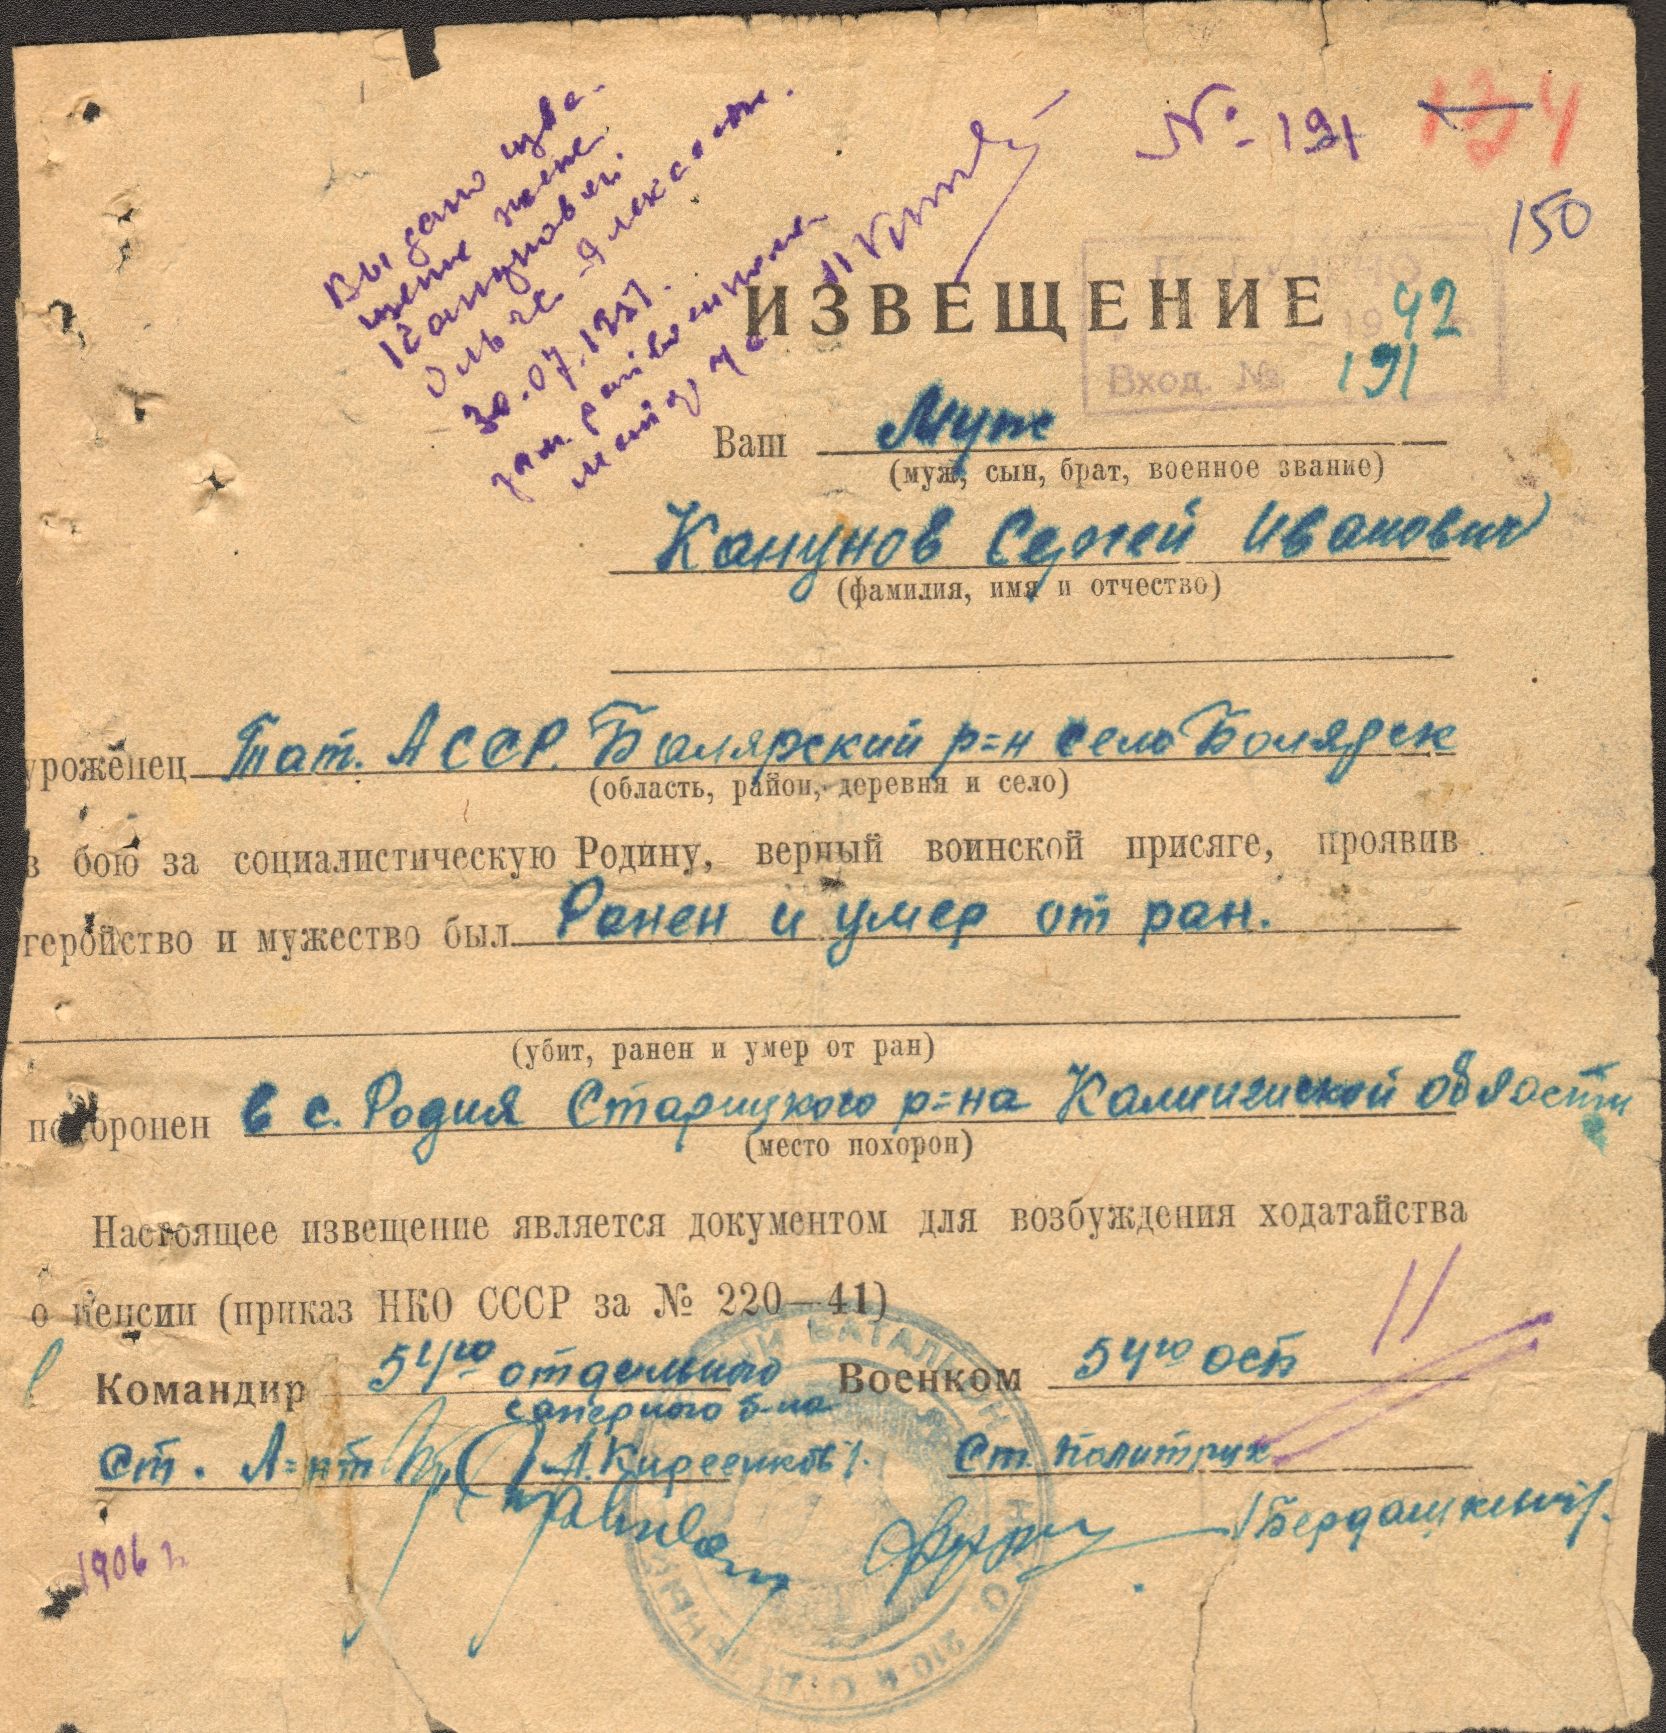 Выдано изве-
щение жене
Кануновой
Ольге Алексан.
30.07.1957.
зам. райвоенкома
майор
№ 191
134
150
ИЗВЕЩЕНИЕ
42
Вход. № 191
Ваш Муж
(муж, сын, брат, военное звание)
Канунов Сергей Иванович
(фамилия, имя и отчество)
уроженец Тат. АССР. Балярский р=н село Болярск
(область, район, деревня и село)
в бою за социалистическую Родину, верный воинской присяге, проявив
геройство и мужество был Ранен и умер от ран.
(убит, ранен и умер от ран)
похоронен в с. Родня Старицкого р=на Калининской области
(место похорон)
Настоящее извещение является документом для возбуждения ходатайства
о пенсии (приказ НКО СССР за № 220—41)
Командир 54го отдельного Военком 54го осб
саперного б-на
Ст. Л=нт /А. Киреенков/. Ст. Политрук
/Бердашкевич/.
1906 г.